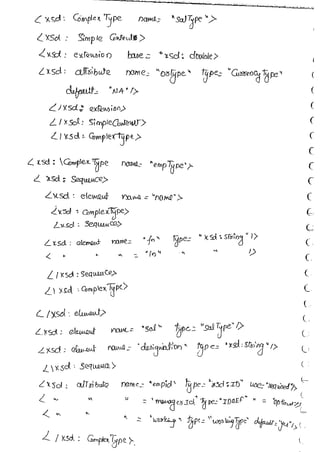 <xsd: Complex Type name= "salType">
<xsd: Simple Content>
<xsd: extension base= "xsd: double>
<xsd: attribute name= "saltype" type= "Currency Type"
default= "NA"/>
</xsd: extension>
</xsd: SimpleContent>
</xsd: Complextype>
<xsd: \Complex Type name= "empType">
<xsd: Sequence>
<xsd: element name= "name">
<xsd: ComplexType>
<xsd: Sequence>
<xsd: element name= "fn" type= "xsd:string"/>
< " " = "ln" " " />
</xsd: Sequence>
</xsd: ComplexType>
</xsd: element>
<xsd: element name= "Sal" type= "salType"/>
<xsd: element name= "designation" type= "xsd:string"/>
<\xsd: Sequence>
<xsd: attribute name= "empid" type= "xsd:ID" use="required"/>
< " " = "manager id" type= "IDREF" "
< " " " = "working" type= "workingType" default=
</xsd: ComplexType>